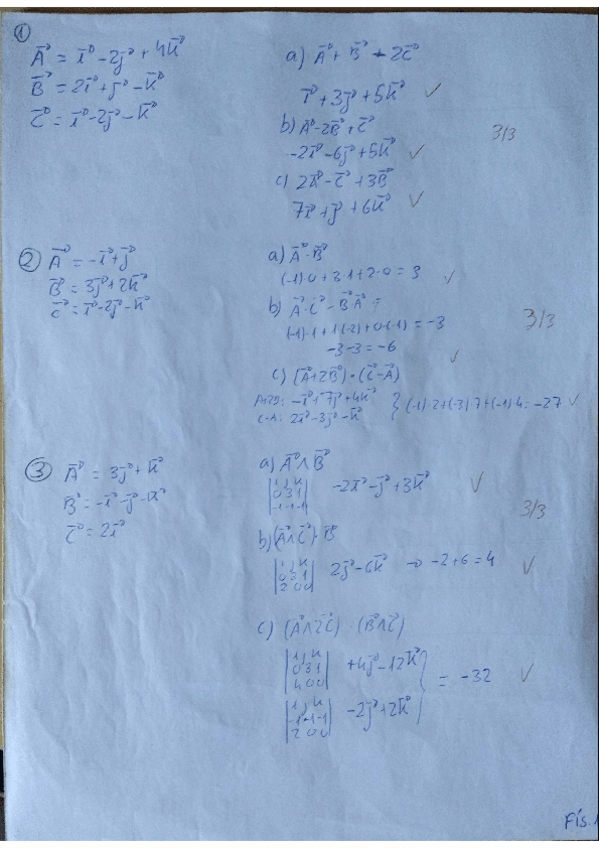 ①
A⃗ = i⃗ - 2j⃗ + 4k⃗
B⃗ = 2i⃗ + j⃗ - k⃗
C⃗ = i⃗ - 2j⃗ - k⃗
a) A⃗ + B⃗ - 2C⃗
i⃗ + 3j⃗ + 5k⃗ ✓
b) A⃗ - 2B⃗ + C⃗
-2i⃗ - 6j⃗ + 5k⃗ ✓
c) 2A⃗ - C⃗ + 3B⃗
7i⃗ + j⃗ + 6k⃗ ✓
3/3
② A⃗ = -i⃗ + j⃗
B⃗ = 3j⃗ + 2k⃗
C⃗ = i⃗ - 2j⃗ - k⃗
a) A⃗ · B⃗
(-1)·0 + 3·1 + 2·0 = 3 ✓
b) A⃗ · C⃗ - B⃗ · A⃗ =
(-1)·1 + 1·(-2) + 0·(-1) = -3
-3 - 3 = -6 ✓
3/3
c) (A⃗ + 2B⃗) · (C⃗ - A⃗)
A+2B: -i⃗ + 7j⃗ + 4k⃗
C-A: 2i⃗ - 3j⃗ - k⃗
} (-1)·2 + (-3)·7 + (-1)·4 = -27 ✓
③ A⃗ = 3j⃗ + k⃗
B⃗ = -i⃗ - j⃗ - k⃗
C⃗ = 2i⃗
a) A⃗ ∧ B⃗
|i j k|
|0 3 1|
|-1 -1 -1|
-2i⃗ - j⃗ + 3k⃗ ✓
3/3
b) (A⃗ ∧ C⃗) · B⃗
|i j k|
|0 3 1|
|2 0 0|
2j⃗ - 6k⃗ → -2 + 6 = 4 ✓
c) (A⃗ ∧ 2C⃗) · (B⃗ ∧ C⃗)
|i j k|
|0 3 1|
|4 0 0|
+4j⃗ - 12k⃗
|i j k|
|-1 -1 -1|
|2 0 0|
-2j⃗ + 2k⃗
} = -32 ✓
Fís.